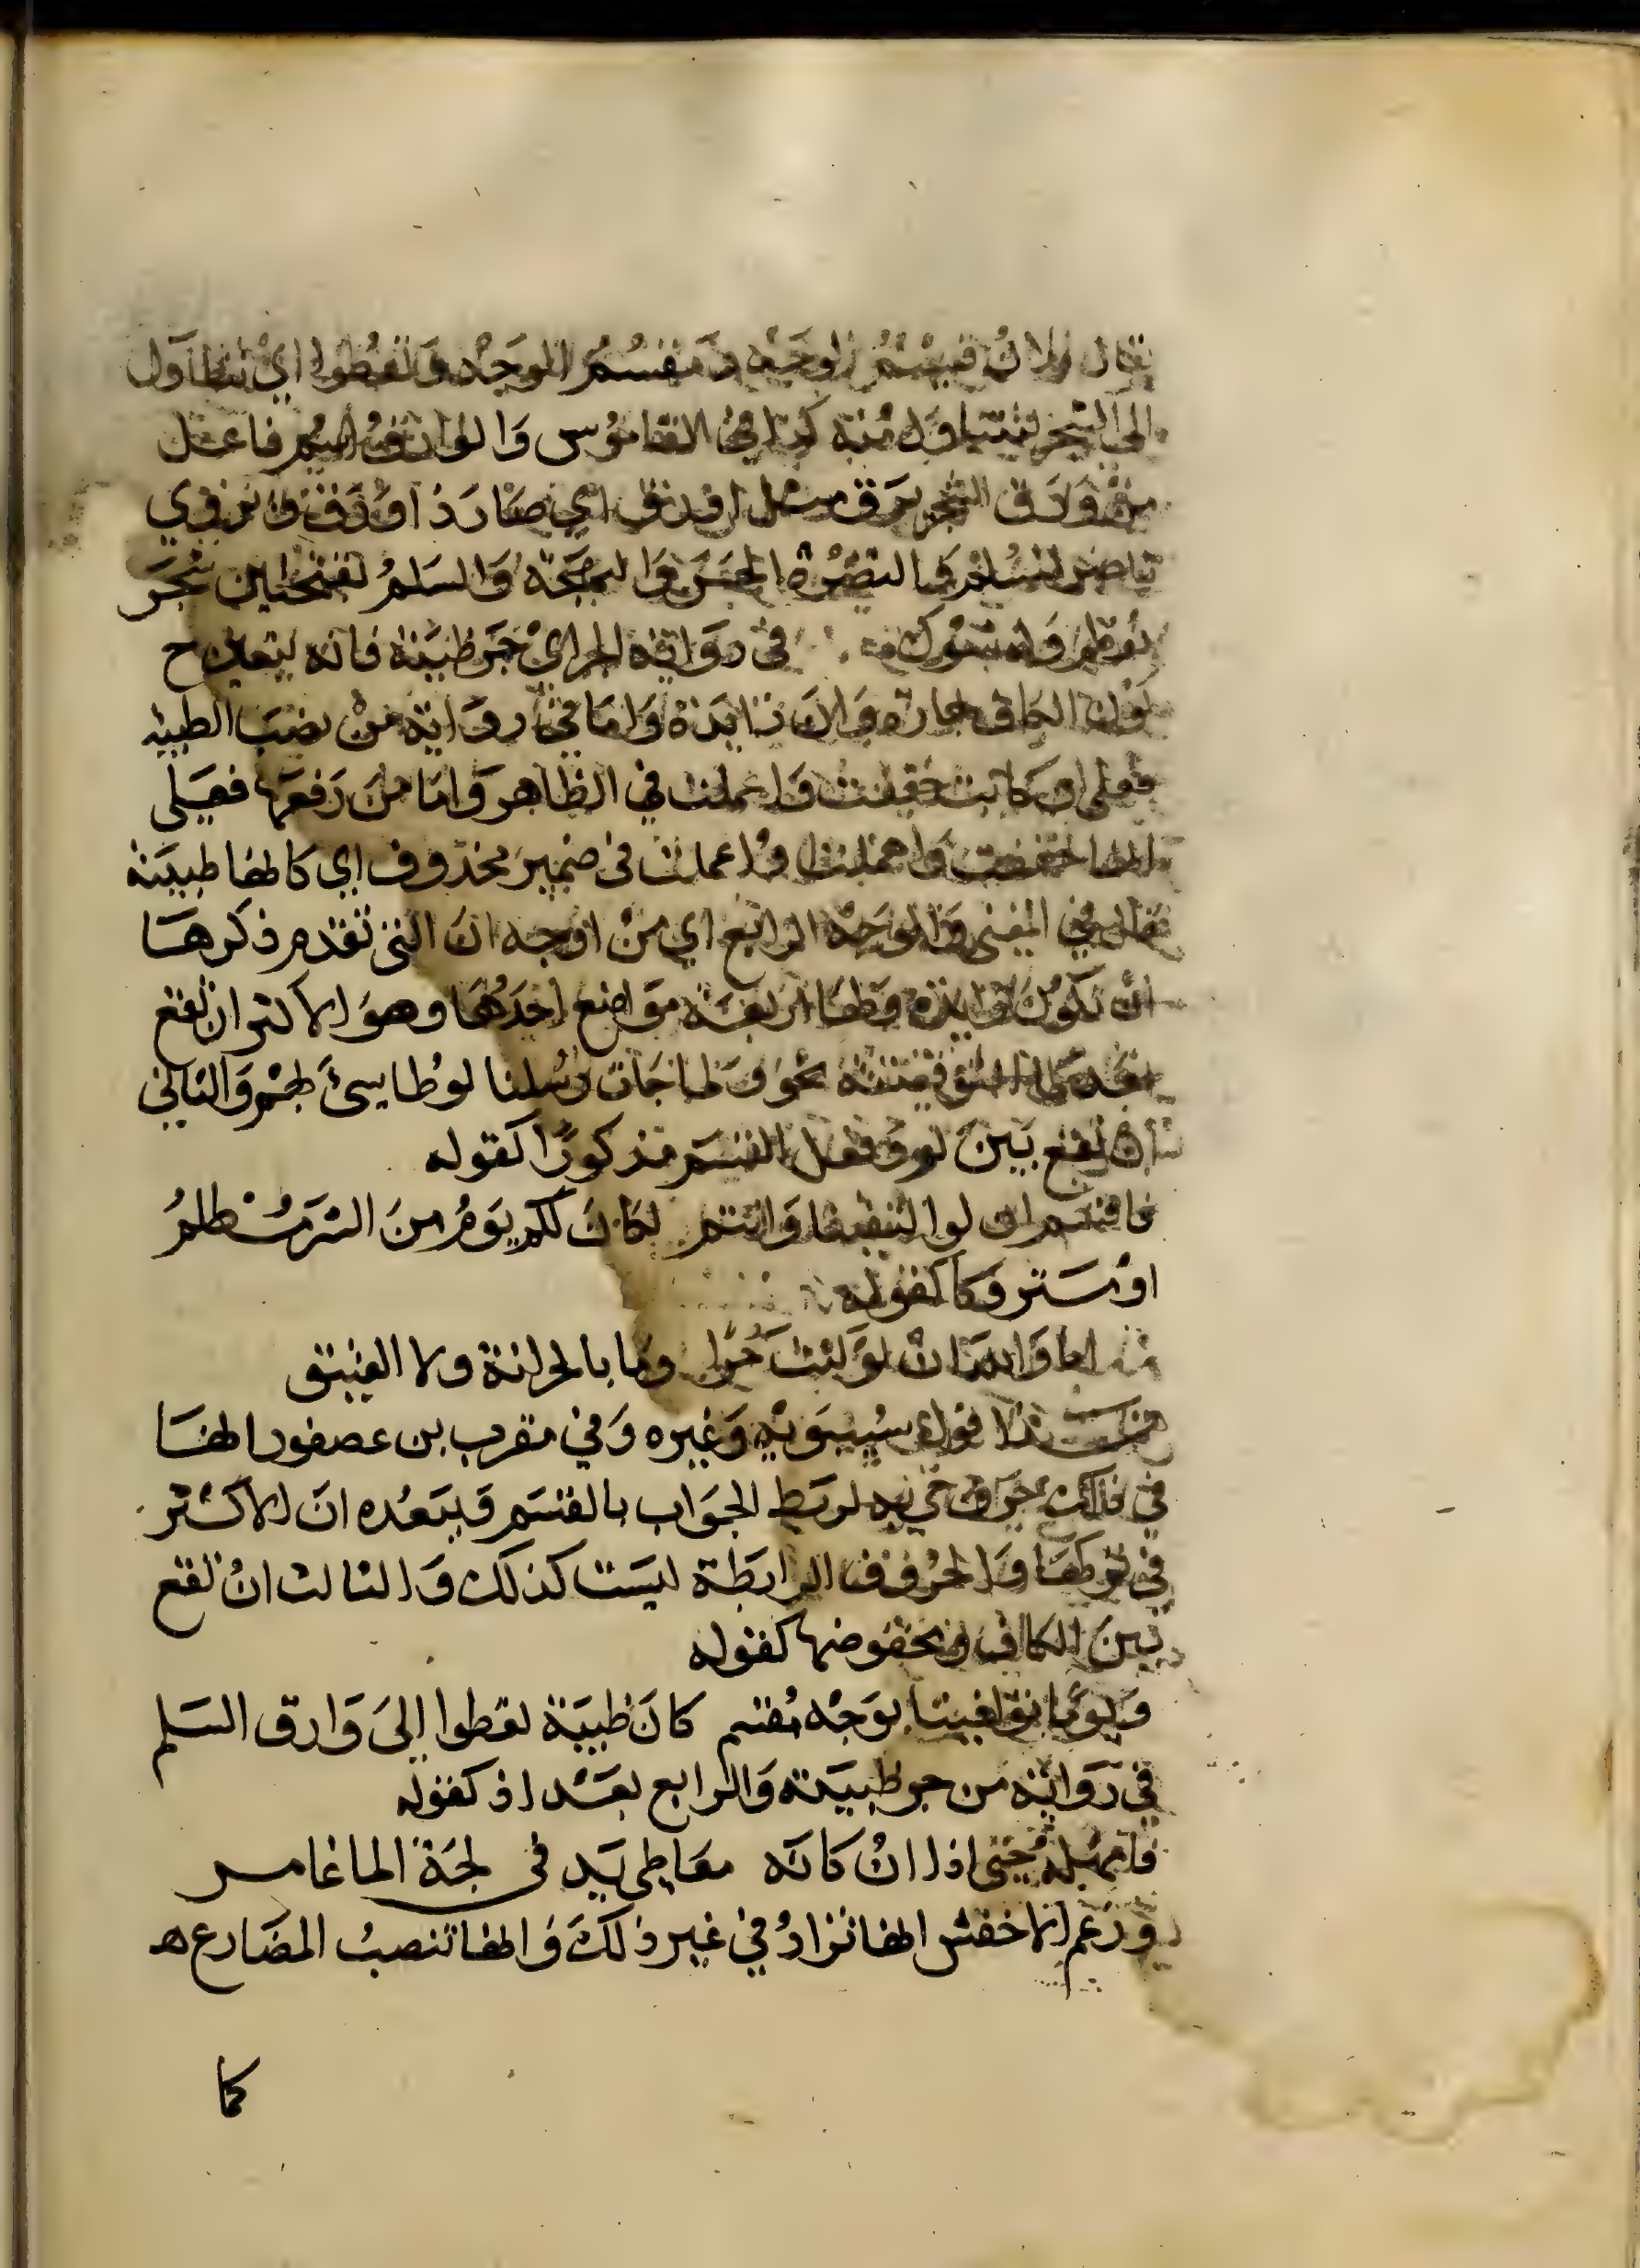 يقال فلان قسيم الوجه ومقسم الوجه وتعطوا اي تتطاول
الى الشجر لتتناول منه كذا في القاموس والوارق اسم فاعل
من ورق الشجر يرق مثل اورق اي صار ذا ورق ويروي
ناضر السلم والنضرة الحسن والبهجة والسلم بفتحتين شجر
في رواية الجر اي جر ظبية فانه يتعين ح
كون الكاف جارة وان زايدة واما في رواية من نصب الظبية
فعلى ان كانت خففت واعملت في الظاهر واما من رفعها فعلى
انها خففت واهملت او اعملت في ضمير محذوف اي كانها ظبية
قال في المغني والوجه الرابع اي من اوجه ان التي تقدم ذكرها
ان تكون زايدة ولها اربعة مواضع احدها وهو الاكثر ان تقع
بعد لما التوقيتية نحو ولما جات رسلنا لوطا سيئ بهم والثاني
ان تقع بين لو وفعل القسم مذكورا كقوله
فاقسم ان لو التقينا وانتم لكان لكم يوم من الشر مظلم
او متروكا كقوله
اما والله ان لو كنت حرا وما بالحر انت ولا العتيق
هذا قول سيبويه وغيره وفي مقرب بن عصفور انها
في ذلك حرف جي به لربط الجواب بالقسم ويبعده ان الاكثر
في تركها والحروف الرابطة ليست كذلك والثالث ان تقع
بين الكاف ومخفوضها كقوله
ويوما توافينا بوجه مقسم كان ظبية تعطوا الى وارق السلم
في رواية من جر ظبية والرابع بعد اذ كقوله
فامهله حتى اذا ان كانه معاطي يد في لجة الما غامر
وزعم الاخفش انها تزاد في غير ذلك وانها تنصب المضارع ه
كما